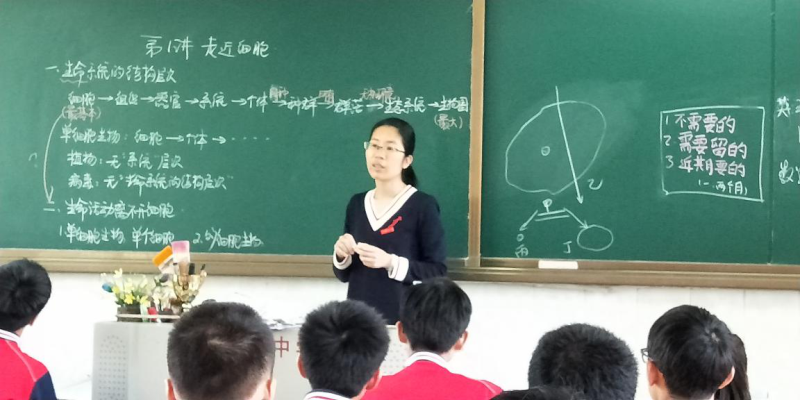 第1讲 走近细胞
一、生命系统的结构层次
细胞→组织→器官→系统→个体→种群→群落→生态系统→生物圈
(最基本)
(最大)
单细胞生物:细胞→个体→……
植物:无"系统"层次
病毒:无"生命系统的结构层次"
二、生命活动离不开细胞
1.单细胞生物 单个细胞 2.多细胞生物
乙
甲
丙
丁
1 不需要的
2. 需要留的
3 近期要的
(一、两个月)
中